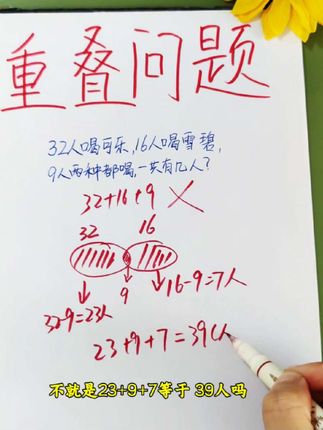 重叠问题
32人喝可乐,16人喝雪碧,
9人两种都喝,一共有几人?
32+16+9 ×
32 16
9
16-9=7人
32-9=23人
23+9+7=39(人
不就是23+9+7等于 39人吗